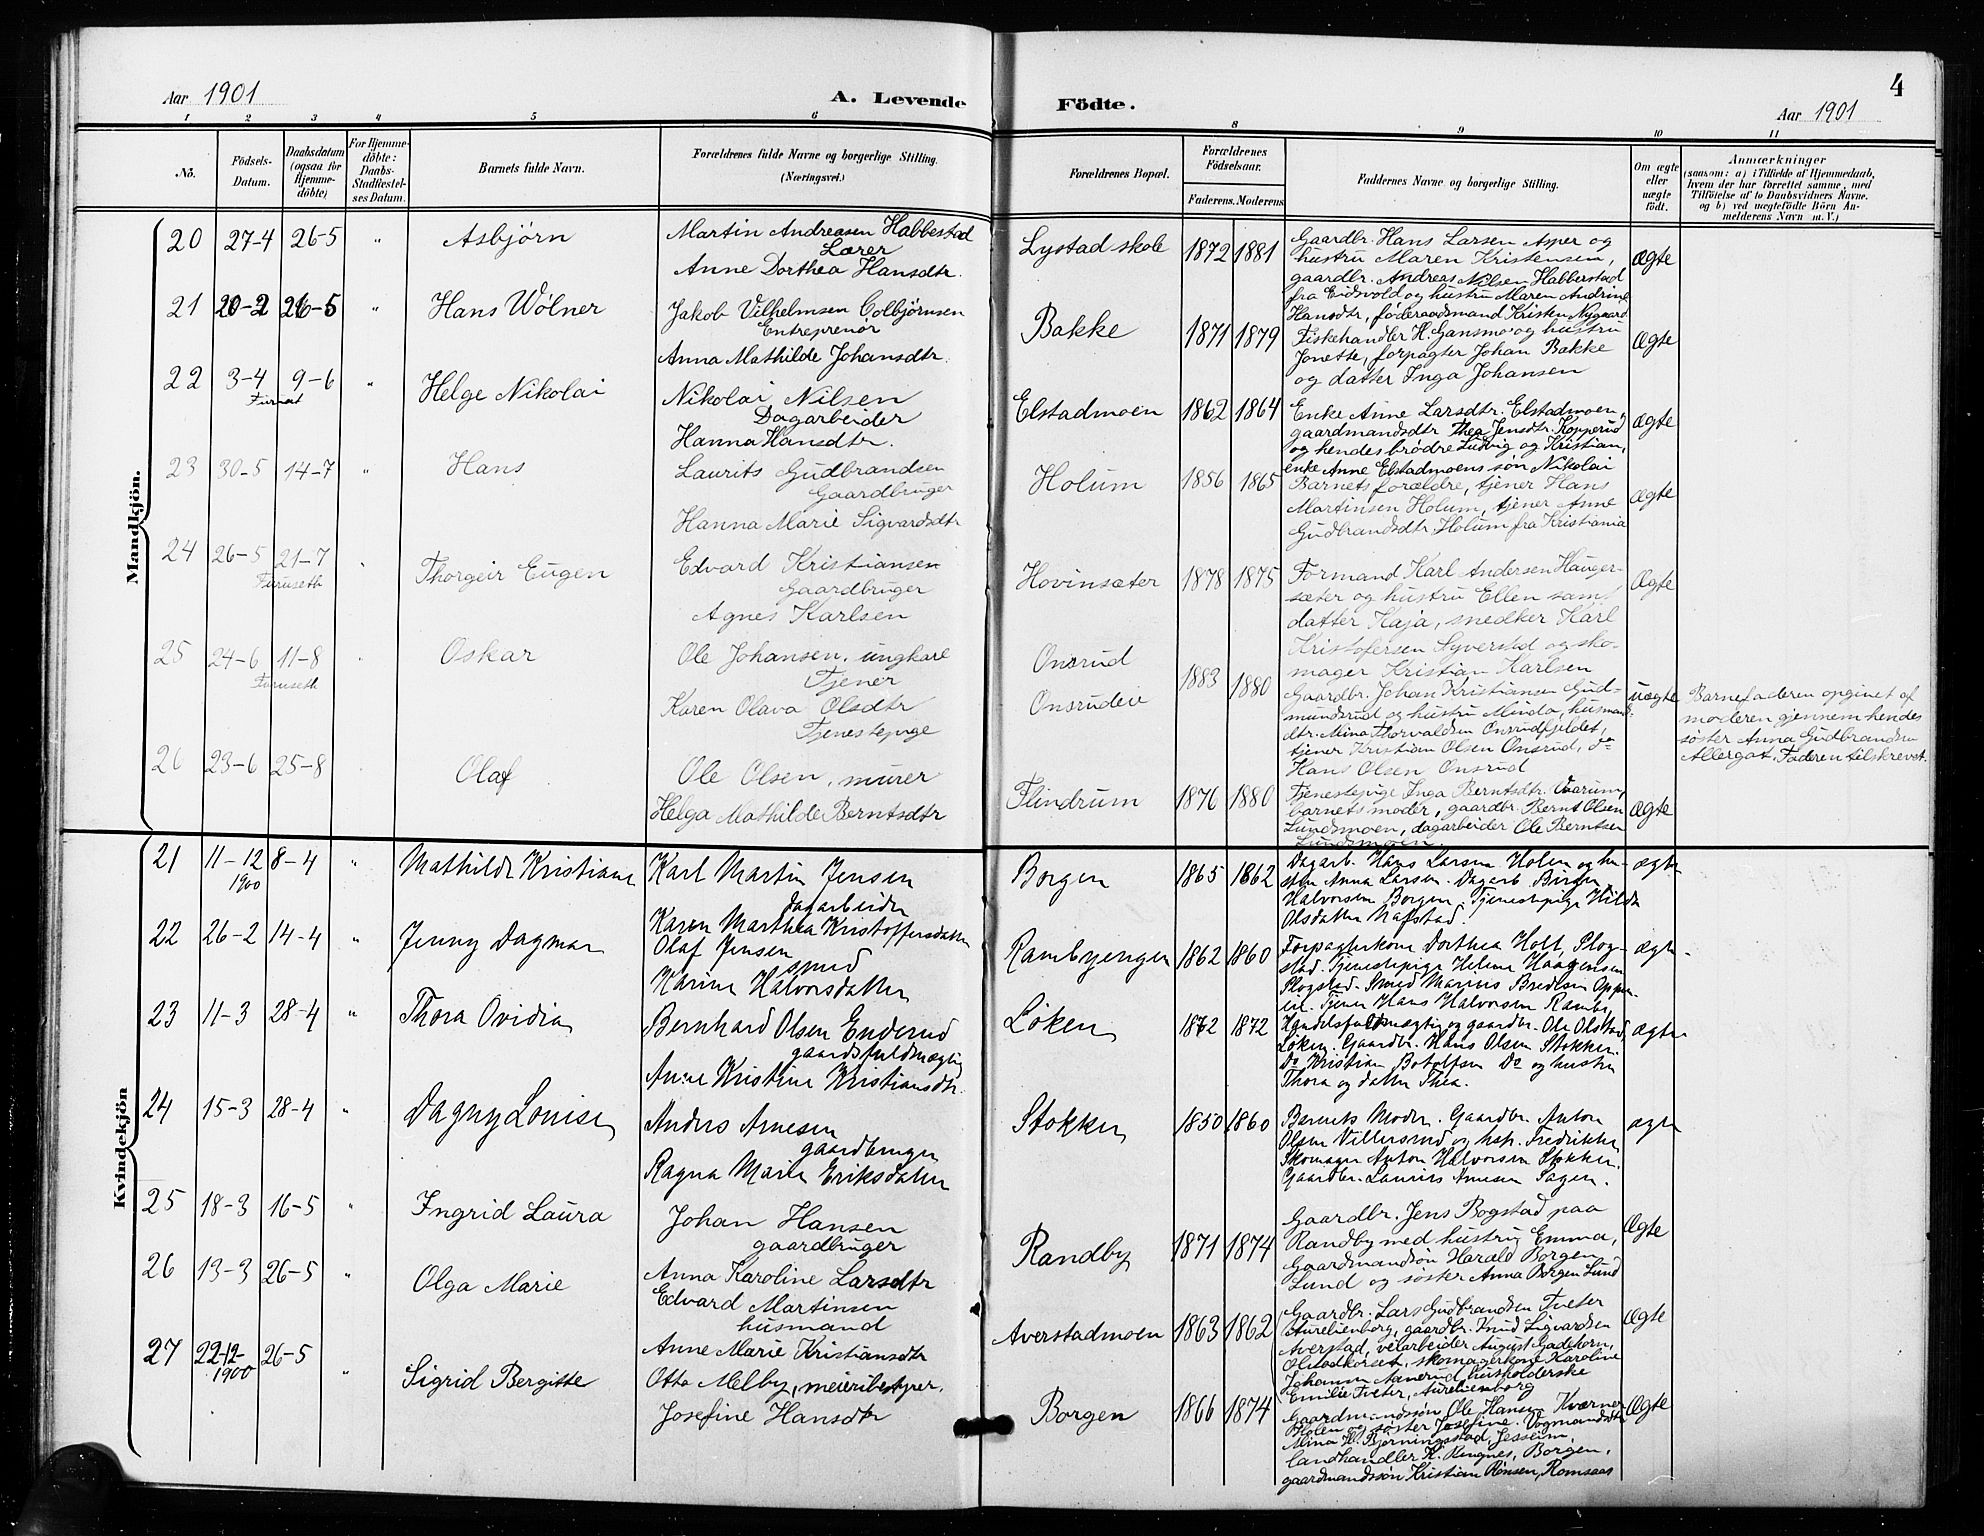 4
Aar 1901
A. Levende
Födte.
Aar 1901
1 2 3 4 5 6 8 9 10 11
No.
Födsels-
Datum.
Daabsdatum
(ogsaa for
Hjemme-
döbte)
For Hjemme-
döbte:
Daabs-
Stadfæstel-
ses Datum.
Barnets fulde Navn.
Forældrenes fulde Navne og borgerlige Stilling.
(Næringsvei.)
Forældrenes Bopæl.
Forældrenes
Födselsaar.
Faderens. Moderens
Faddernes Navne og borgerlige Stilling.
Om ægte
eller
uægte
födt.
Anmærkninger
(saasom: a) i Tilfælde af Hjemmedaab,
hvem der har forrettet samme, med
Tilföielse af to Daabsvidners Navne.
og b) ved uægtefödte Börn An-
melderens Navn m. V.)
Mandkjön.
20 27-4 26-5 " Asbjörn
Martin Andreasen Habbestad
Lærer
Anne Dorthea Hansdtr.
Lystad skole 1872 1881
Gaardbr. Hans Larsen Asper og
hustru Maren Kristensen,
gaardbr. Andreas Nilsen Habberstad
fra Eidsvold og hustru Maren Andrine
Hansdtr, föderaadsmand Kristen Nygaard
ægte
21 20-2 26-5 " Hans Wölner
Jakob Vilhelmsen Colbjörnsen
Entreprenör
Anna Mathilde Johansdtr.
Bakke 1871 1879
Fiskehandler H. Gansmo og hustru
Jonette, forpagter Johan Bakke
og datter Inga Johansen
ægte
22 3-4 9-6 " Helge Nikolai
Nikolai Nilsen
Dagarbeider
Hanna Hansdtr.
Elstadmoen 1862 1864
Enke Anne Larsdtr. Elstadmoen,
gaardmandsdtr Thea Jensdtr. Kopperud
og hendes brödre Ludvig og Kristian,
enke Anne Elstadmoens sön Nikolai
ægte
23 30-5 14-7 " Hans
Laurits Gudbrandsen
Gaardbruger
Hanna Marie Sigvardsdtr
Holum 1856 1865
Barnets forældre, tjener Hans
Martinsen Holum, tjener Anne
Gudbrandsdtr. Holum fra Kristiania
ægte
24 26-5 21-7 Thorgeir Eugen
Furuseth
Edvard Kristiansen
Gaardbruger
Agnes Karlsen
Hovinsæter 1878 1875
Formand Karl Andersen Hauger-
sæter og hustru Ellen samt
datter Kaja, snedker Karl
Kristofersen Syverstad og sko-
mager Kristian Karlsen
Ægte
25 24-6 11-8 Oskar
Furuseth
Ole Johansen, ungkarl
Tjener
Karen Olava Olsdtr
Tjenestepige
Onsrud
Onsrudeie
1883 1880
Gaardbr. Johan Kristiansen Gud-
mundsrud og hustru Minda, husmand
dtr. Mina Thorvaldsen Onsrudfjeldet,
tjener Kristian Olsen Onsrud, do
Hans Olsen Onsrud
uægte
Barnefaderen opgivet af
moderen gjennem hendes
söster Anna Gudbrandsen
Allergot. Faderen tilskrevet.
26 23-6 25-8 Olaf
Ole Olsen, murer
Helga Mathilde Berntsdtr
Flindrum 1876 1880
Tjenestepige Inga Berntsdtr. Vaarum,
barnets moder, gaardbr. Bernt Olsen
Lundsmoen, dagarbeider Ole Berntsen
Lundsmoen.
Ægte
Kvindekjön
21 11-12 8-4 " Mathilde Kristiane
1900
Karl Martin Jensen
dagarbeider
Karen Marthea Kristoffersdatter
Borgen 1865 1862
Dagarb. Hans Larsen Holen og hu-
stru Anna Larsen. Dagarb. Birger
Halvorsen Borgen. Tjenestepige Hilda
Olsdatter Nafstad.
ægte
22 26-2 14-4 " Jenny Dagmar
Olaf Jensen
smed
Karine Halvorsdatter
Rambyengen 1862 1860
Forpagterkone Dorthea Holt, Slog-
stad. Tjenestepige Helene Haagensen
Slogstad. Smed Marius Bredesen Oppe-
eie. Tjener Hans Halvorsen Ramby
ægte
23 11-3 28-4 " Thora Ovidia
Bernhard Olsen Enderud
gaardsfuldmægtig
Anne Kristine Kristiansdtr.
Löken 1872 1872
Handelsfuldmægtig og gaardbr. Ole Olstad,
Löken. Gaardbr. Hans Olsen Stokker.
Do Kristian Botolfsen Do og hustru
Thora og datter Thea.
ægte
24 15-3 28-4 " Dagny Louise
Anders Arnesen
gaardbruger
Ragna Marie Eriksdatter
Stokker 1850 1860
Barnets Moder. Gaardbr. Anton
Olsen Villersrud og hst. Fredrikke
Skomager Anton Halvorsen Stokker.
Gaardbr. Laurits Arnesen Sagen.
ægte
25 18-3 16-5 " Ingrid Laura
Johan Hansen
gaardbruger
Anna Karoline Larsdtr
Randby 1871 1874
Gaardbr. Jens Bogstad paa
Randby med hustru Emma,
Gaardmandsön Harald Borgen
Lund og söster Anna Borgen Lund
Ægte
26 13-3 26-5 " Olga Marie
Edvard Martinsen
husmand
Anne Marie Kristiansdtr
Averstadmoen 1863 1862
Gaardbr. Lars Gudbrandsen Tveter
Aurelienborg, gaardbr. Knud Sigvardsen
Averstad, veiarbeider August Gadehorn,
Olstadkorset, skomagerkone Karoline
Johansen Aanerud, husholderske
Emilie Tveter, Aurelienborg
Ægte
27 22-12- 26-5 " Sigrid Bergitte
1900
Otto Melby, meieribestyrer.
Josefine Hansdtr
Borgen 1866 1874
Gaardmandssön Ole Hansen Kværner
Holen og söster Josefine. Vognmandsdtr
Mina H. Bjerningstad, Jessheim,
landhandler K. Ringnes, Borgen,
gaardmandssön Kristian Rönsen, Romsaas
Ægte